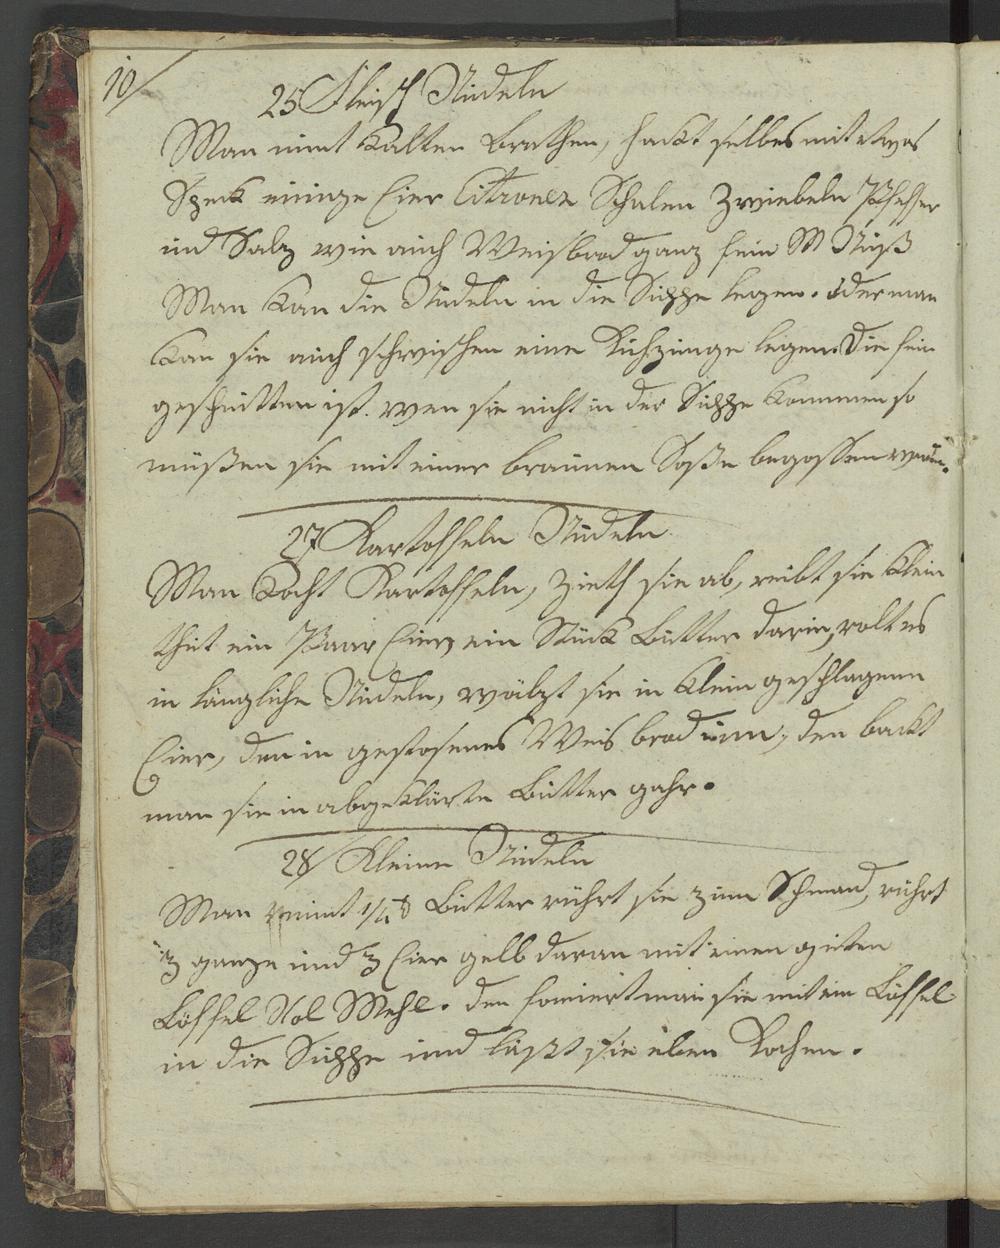 10/
25 Fleisch Nudeln
Man nimt Kalten Brathen, hackt selbes mit etwas
Speck einige Eier Citronen Schalen Zwiebeln Pfeffer
und Salz wie auch Weisbrod ganz fein M Nuß
Man kan die Nudeln in die Suppe legen. oder man
kan sie auch zwischen eine Kuhzunge legen. Die fein
geschnitten ist. wen sie nicht in der Suppe kommen so
müßen sie mit einer braunen Soße begossen
27 Kartoffeln Nudeln
Man kocht Kartoffeln, zieth sie ab, reibt sie klein
thut ein Paar Eier, ein Stück Butter darin, rolt es
in längliche Nudeln, wälzt sie in klein geschlagenen
Eier, den in gestosenes Weis brod um, den backt
man sie in abgeklärte Butter gahr.
28/ Kleine Nudeln
Man nimt 1/4 ℔ Butter rührt sie zum Schmand, rührt
3 ganze und 3 Eier gelb daran mit einen guten
Löffel Vol Mehl. den formiert man sie mit ein Löffel
in die Suppe und läßt sie eben Kochen.